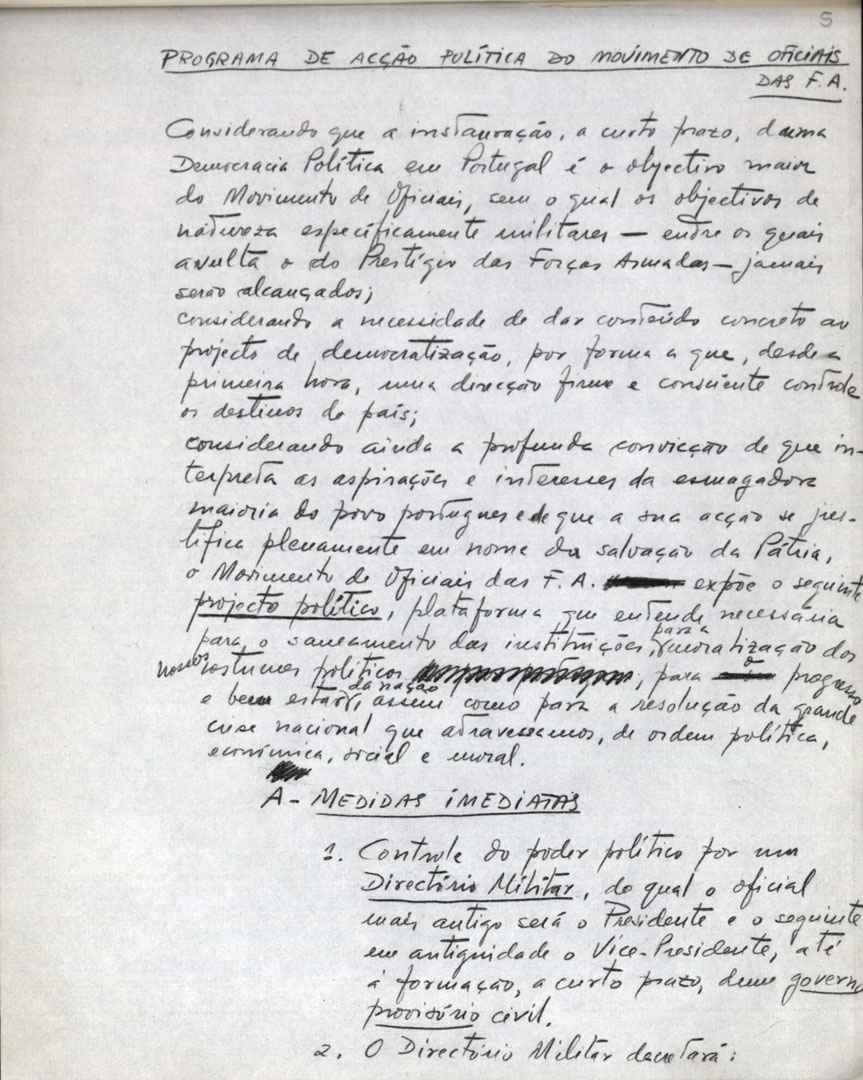 5
PROGRAMA DE ACÇÃO POLÍTICA DO MOVIMENTO DE OFICIAIS
DAS F.A.
Considerando que a instauração, a curto prazo, duma
Democracia Política em Portugal é o objectivo maior
do Movimento de Oficiais, sem o qual os objectivos de
natureza especìficamente militares — entre os quais
avulta o do Prestígio das Forças Armadas — jamais
serão alcançados;
considerando a necessidade de dar conteúdo concreto ao
projecto de democratização, por forma a que, desde a
primeira hora, uma direcção firme e consciente controle
os destinos do país;
considerando ainda a profunda convicção de que in-
terpreta as aspirações e interesses da esmagadora
maioria do povo português e de que a sua acção se jus-
tifica plenamente em nome da salvação da Pátria,
o Movimento de Oficiais das F.A. expõe o seguinte
projecto político, plataforma que entende necessária
para o saneamento das instituições, para a moralização dos
nossos costumes políticos, para o progresso
e bem estar da nação, assim como para a resolução da grande
crise nacional que atravessamos, de ordem política,
económica, social e moral.
A - MEDIDAS IMEDIATAS
1. Controle do poder político por um
Directório Militar, do qual o oficial
mais antigo será o Presidente e o seguinte
em antiguidade o Vice-Presidente, até
à formação, a curto prazo, dum governo
provisório civil.
2. O Directório Militar decretará: